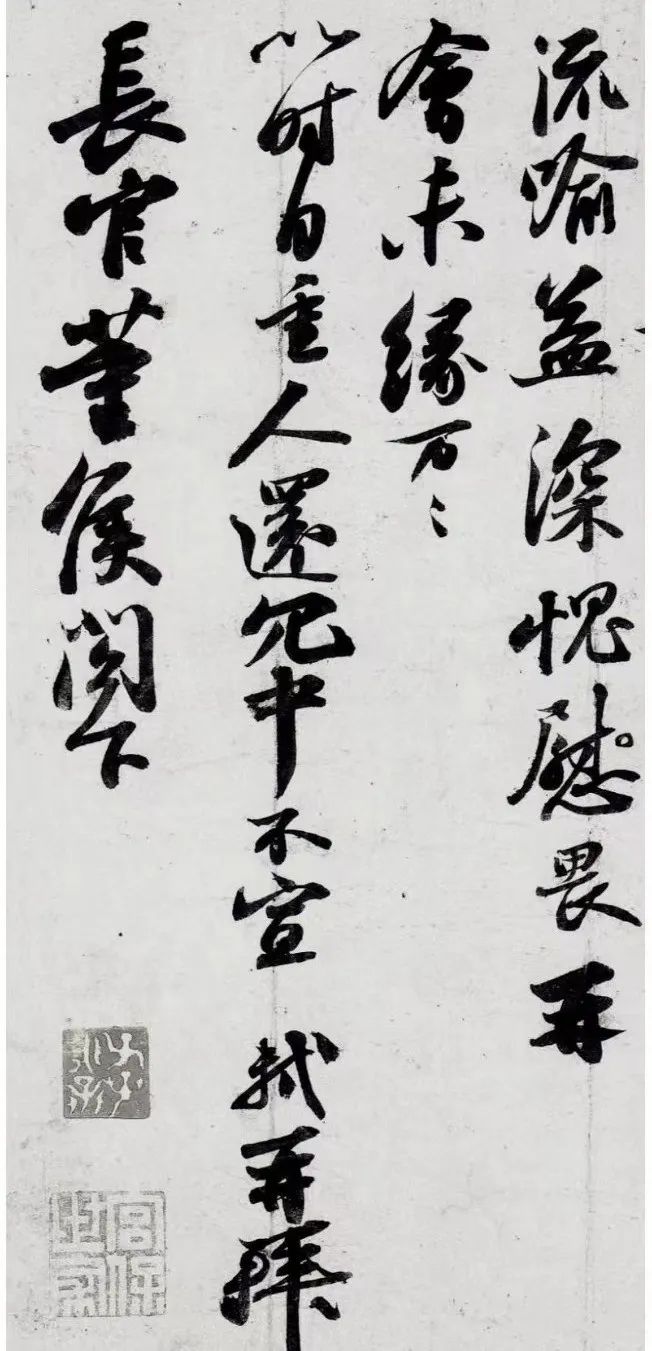 流喻益深愧慰畏再
會未緣万〻
以时自重人還冗中不宣 軾再拜
長官董侯閣下